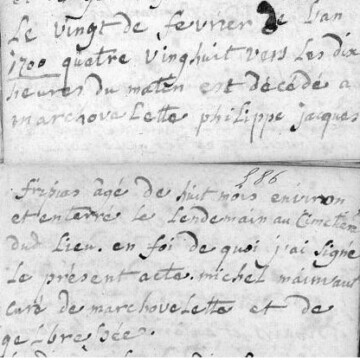 Le vingt de fevrier de l'an
1700 quatre vinghuit vers les dix
heures du maten est décédé a
marchovelette philippe jacques
586
agé de huit mois environ
et enterré le lendemain au Cimetiere
dud Lieu. en foi de quoi j'ai signé
le present acte. michel
curé de marchovelette et de
gelbressée.